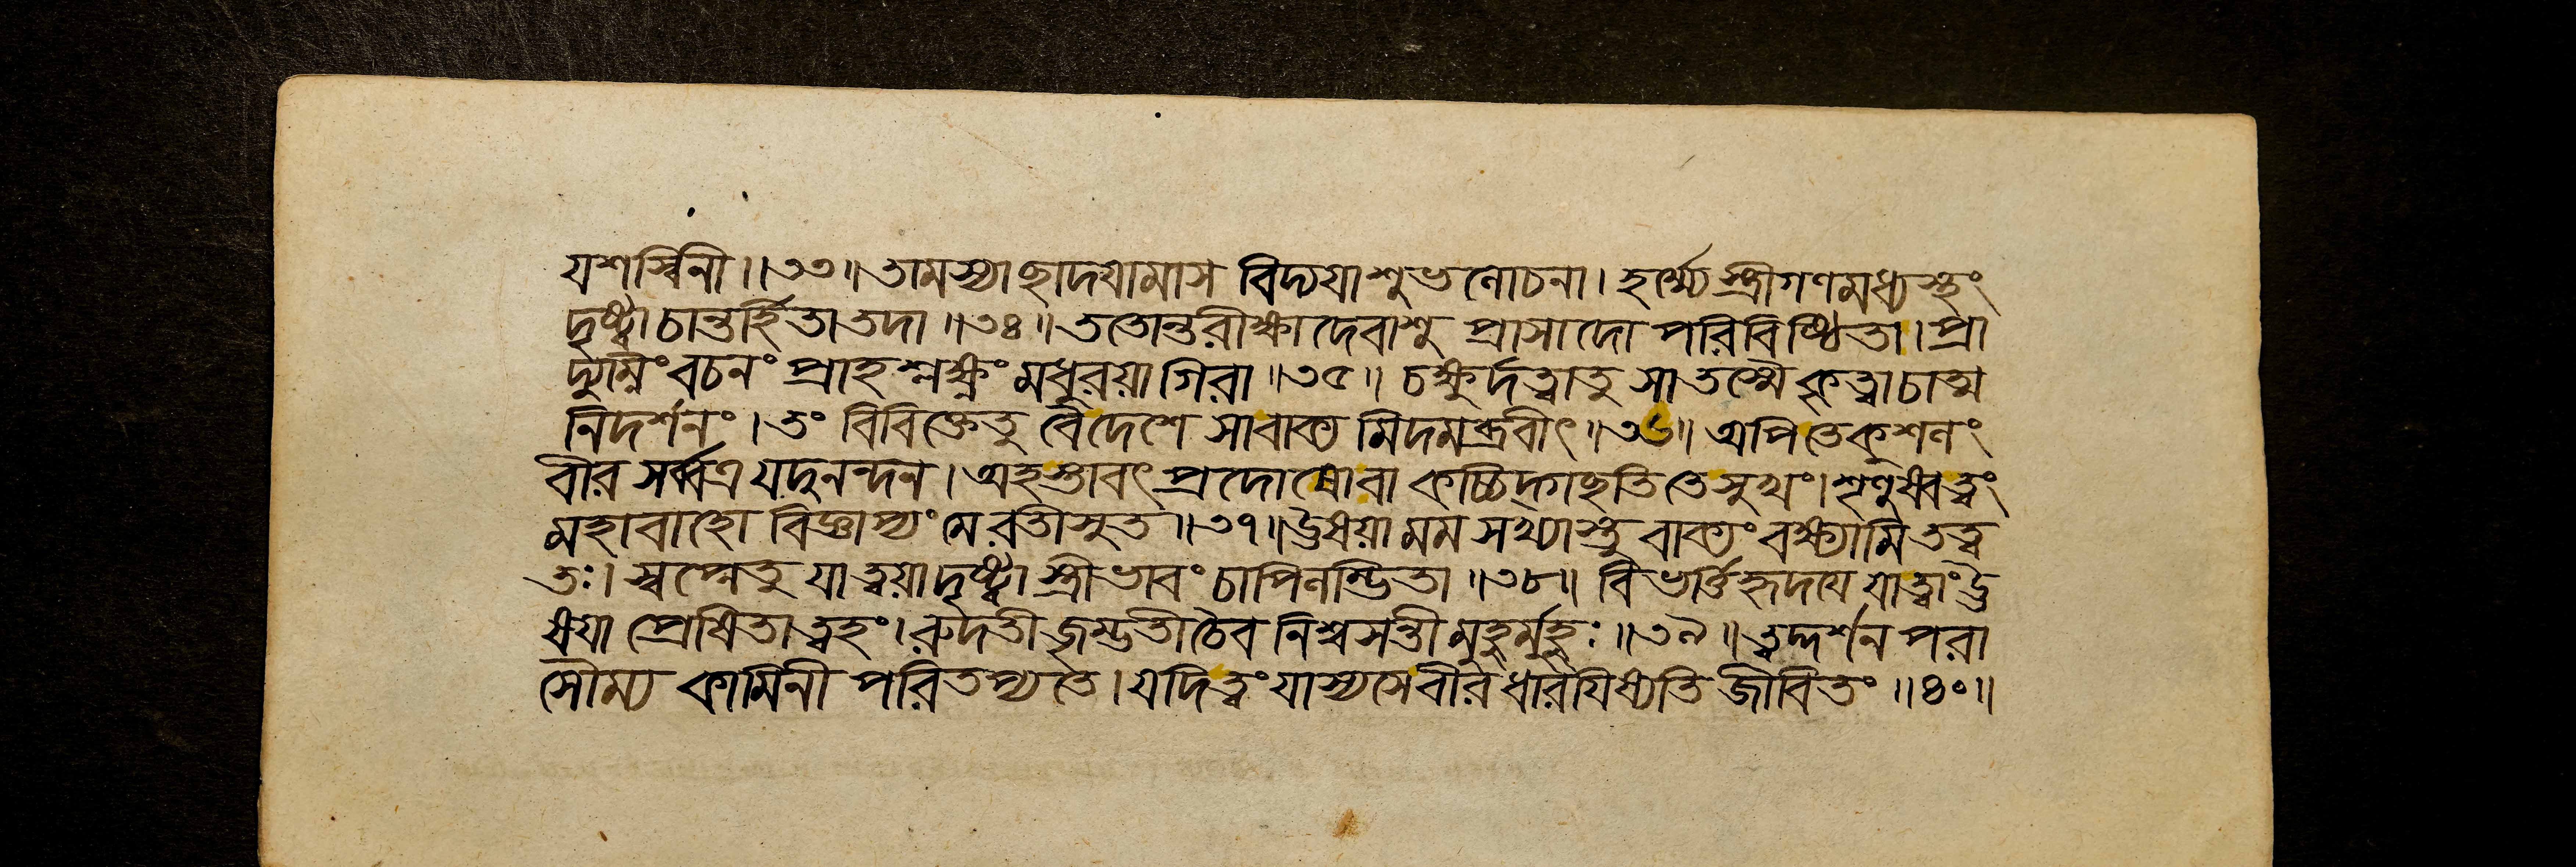 যশস্বিনী।।৩৩॥তামস্যাছাদয়ামাস বিদ্যয়াশুভলোচনা। হর্ম্ম্যেস্ত্রীগণমধ্যস্থং
দৃষ্ট্বাচান্তর্হিতাতদা॥৩৪॥ততোন্তরীক্ষাদেবাশু প্রাসাদো পরিবিষ্ঠিতা। প্রা
দ্যুম্নিংবচনং প্রাহশ্লক্ষ্ণং মধুরয়াগিরা॥৩৫॥ চক্ষুর্দত্বাতু সাতস্মৈকৃত্বাচাত্ম
নিদর্শনং। তং বিবিক্তেতু বৈদেশে সাবাক্য মিদমব্রবীৎ॥৩৬॥ অপিতেকুশলং
বীর সর্ব্বত্র যদুনন্দন। অহস্তাবৎপ্রদোষোবা কচ্চিদ্গছতিতেসুখং। শৃণুষ্বত্বং
মহাবাহো বিজ্ঞাপ্যংমেরতীসুত॥৩৭॥ঊষয়ামম সখ্যাস্তু বাক্যংবক্ষ্যামিতত্ব
তঃ। স্বপ্নেতু যাত্বয়াদৃষ্ট্বা স্ত্রীভাবং চাপিলম্ভিতা॥৩৮॥ বিভর্ত্তিহৃদয়ে যাত্বাংঊ
ষয়া প্রেষিতাত্বহং। রুদতীজৃম্ভতীচৈব নিশ্বসন্তীমুহুর্মুহুঃ॥৩৯॥ত্বদ্দর্শন পরা
সৌম্য কামিনী পরিতপ্যতে। যদিত্বং যাস্যসেবীর ধারয়িষ্যতি জীবিতং॥৪০॥